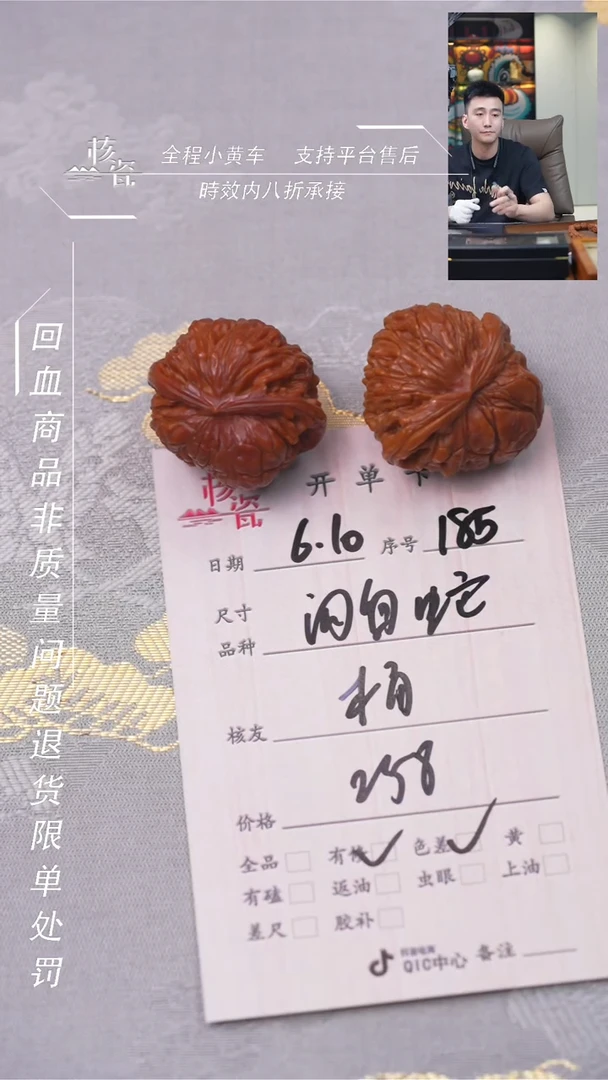 核瓷
全程小黄车 支持平台售后
時效内八折承接
回血商品非质量问题退货限单处罚
核瓷 开单卡
日期 6.10 序号 185
尺寸
品种 闷白蛇
核友
价格 258
全品 有修 色差 黄
有磕 返油 虫眼 上油
差尺 胶补
抖音电商
QIC中心 备注